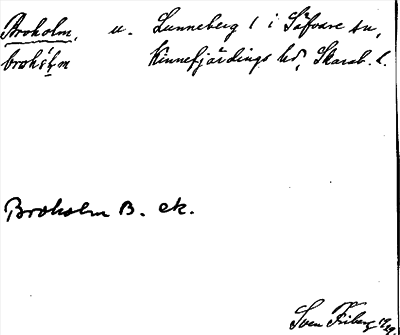 Broholm, u. Lunneberg 1 i Säfvare sn,
Kinnefjärdings hd, Skarab. l.
Broholm B. ek.
Sven Friberg